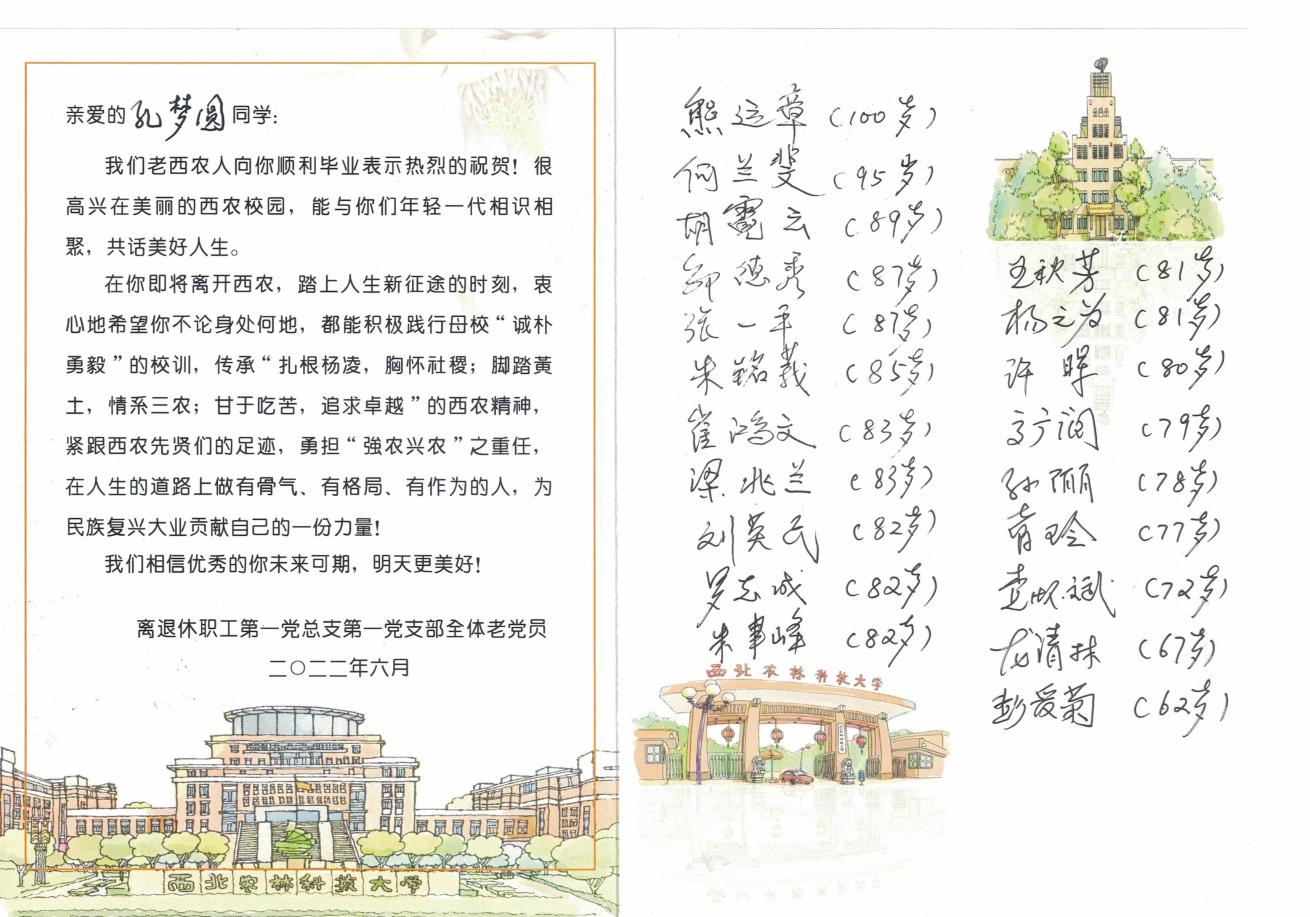 亲爱的孔梦圆同学：
我们老西农人向你顺利毕业表示热烈的祝贺！很
高兴在美丽的西农校园，能与你们年轻一代相识相
聚，共话美好人生。
在你即将离开西农，踏上人生新征途的时刻，衷
心地希望你不论身处何地，都能积极践行母校“诚朴
勇毅”的校训，传承“扎根杨凌，胸怀社稷；脚踏黄
土，情系三农；甘于吃苦，追求卓越”的西农精神，
紧跟西农先贤们的足迹，勇担“強农兴农”之重任，
在人生的道路上做有骨气、有格局、有作为的人，为
民族复兴大业贡献自己的一份力量！
我们相信优秀的你未来可期，明天更美好！
离退休职工第一党总支第一党支部全体老党员
二〇二二年六月
西北农林科技大学
熊运章（100岁）
何兰斐（95岁）
胡霓云（89岁）
德秀（87岁）
张一平（87岁）
朱铭莪（85岁）
崔鸿文（83岁）
梁兆兰（83岁）
刘英民（82岁）
罗志成（82岁）
朱聿峰（82岁）
西北农林科技大学
王秋芳（81岁）
杨之为（81岁）
许晖（80岁）
广润（79岁）
孙丽（78岁）
玲（77岁）
斌（72岁）
龙清林（67岁）
彭爱菊（62岁）